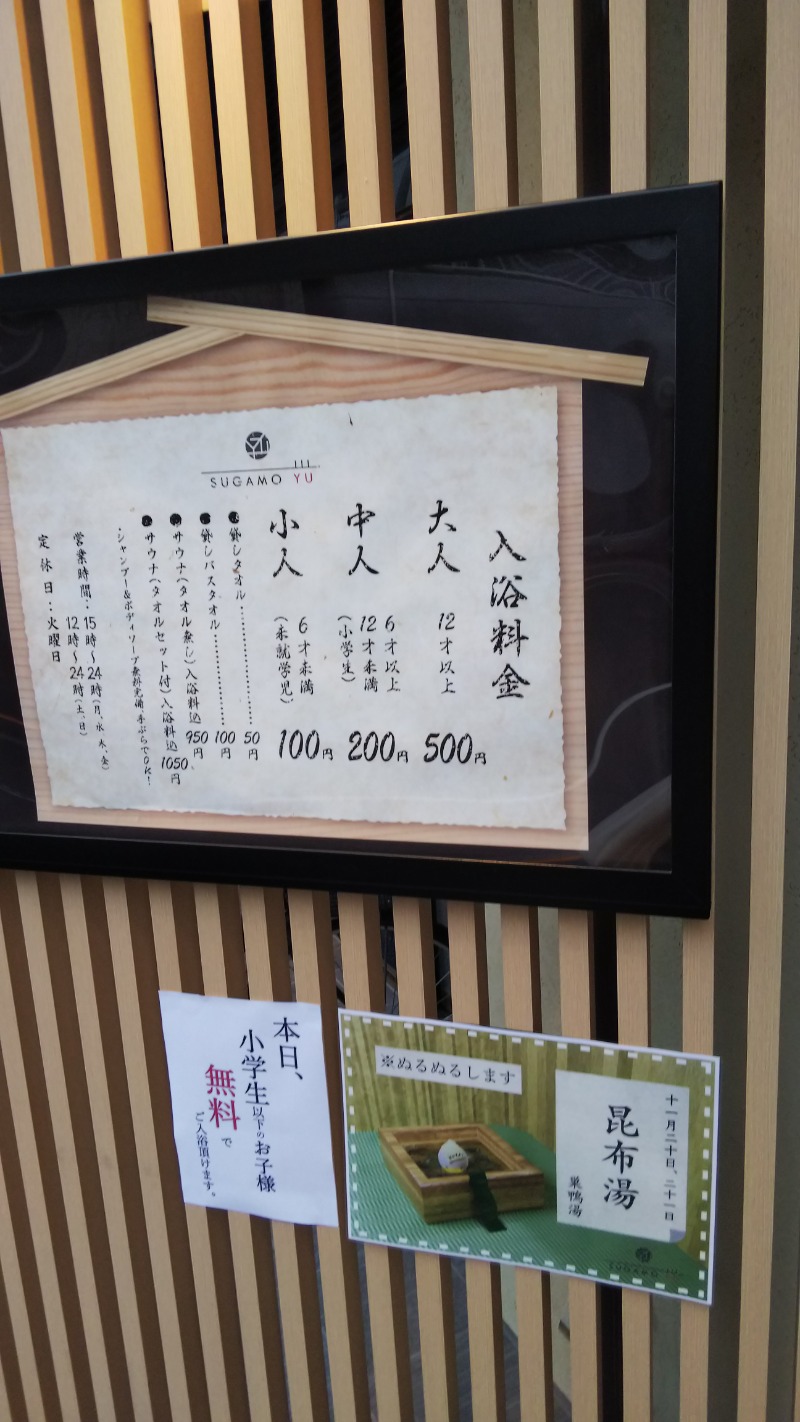 SUGAMO YU
入浴料金
大人 12才以上 500円
中人 6才以上
12才未満
(小学生) 200円
小人 6才未満
(未就学児) 100円
●貸しタオル………………… 50円
●貸しバスタオル…………… 100円
●サウナ(タオル無し)入浴料込 950円
●サウナ(タオルセット付)入浴料込 1050円
・シャンプー&ボディソープ無料完備 手ぶらでOK!
営業時間:15時~24時(月、水、木、金)
12時~24時(土、日)
定休日:火曜日
本日、
小学生以下のお子様
無料で
ご入浴頂けます。
※ぬるぬるします
十一月二十日、二十一日
昆布湯
巣鴨湯
SUGAMO